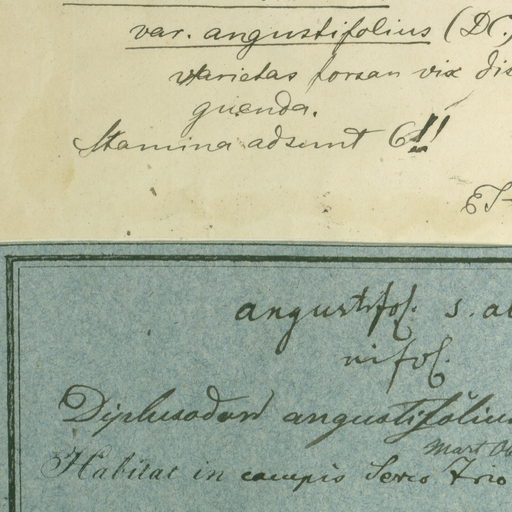 var. angustifolius (DC.)
varietas forsan vix dis
guenda.
Stamina adsunt 6!!
angustifol. s. al
nifol.
Diplusodon angustifolius
Mart
Habitat in campis Serro Frio